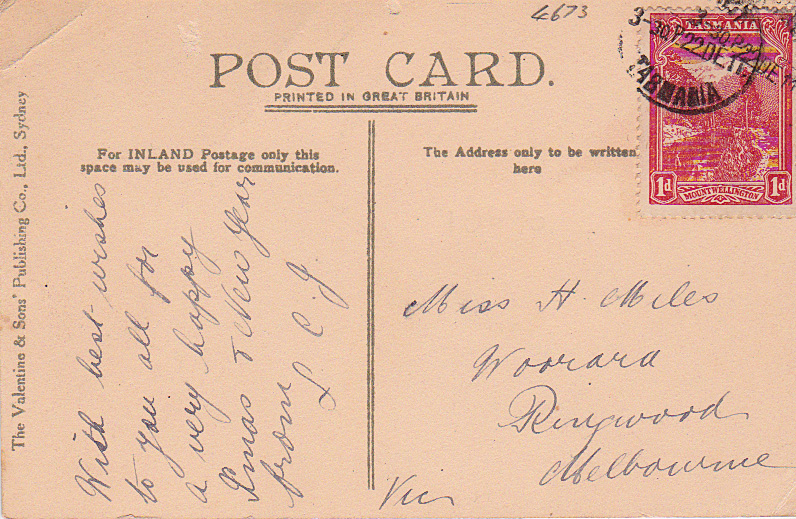 4673
POST CARD.
PRINTED IN GREAT BRITAIN
For INLAND Postage only this
space may be used for communication.
The Address only to be written
here
The Valentine & Sons' Publishing Co., Ltd., Sydney
With best wishes
to you all for
a very happy
Xmas & New Year
from
L C J
Miss H. Miles
Woorara
Ringwood
Melbourne
Vic
TASMANIA
1d
MOUNT WELLINGTON
1d
3-30P
22 DE 11
TASMANIA